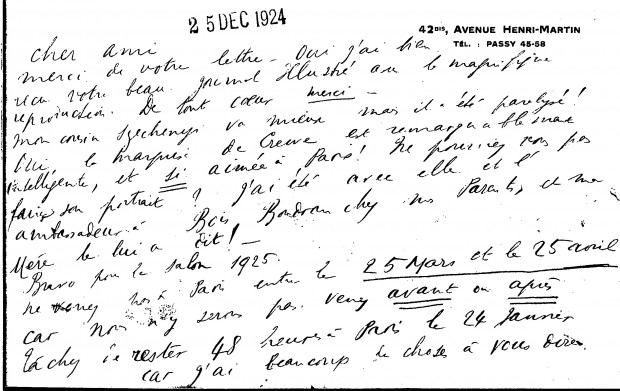 25 DEC 1924
42BIS, AVENUE HENRI-MARTIN
TÉL. : PASSY 45-58
cher ami
merci de votre lettre – Oui j'ai bien
reçu votre beau journal illustré avec le magnifique
reproduction. De tout cœur merci –
mon cousin Szechenyi va mieux mais il a été paralysé!
Oui, la marquise de Crewe est remarquablement
intelligente, et si aimée à Paris! Ne pourriez vous pas
faire son portrait? j'ai été avec elle et l'
ambassadeur à Bois Boudran chez nos Parents, et ma
Mère le lui a dit! –
Bravo pour le salon 1925.
ne venez pas à Paris entre le 25 Mars et le 25 avril
car nous n'y serons pas. venez avant ou après
Tachez de rester 48 heures à Paris le 24 Janvier
car j'ai beaucoup de chose à vous dire.